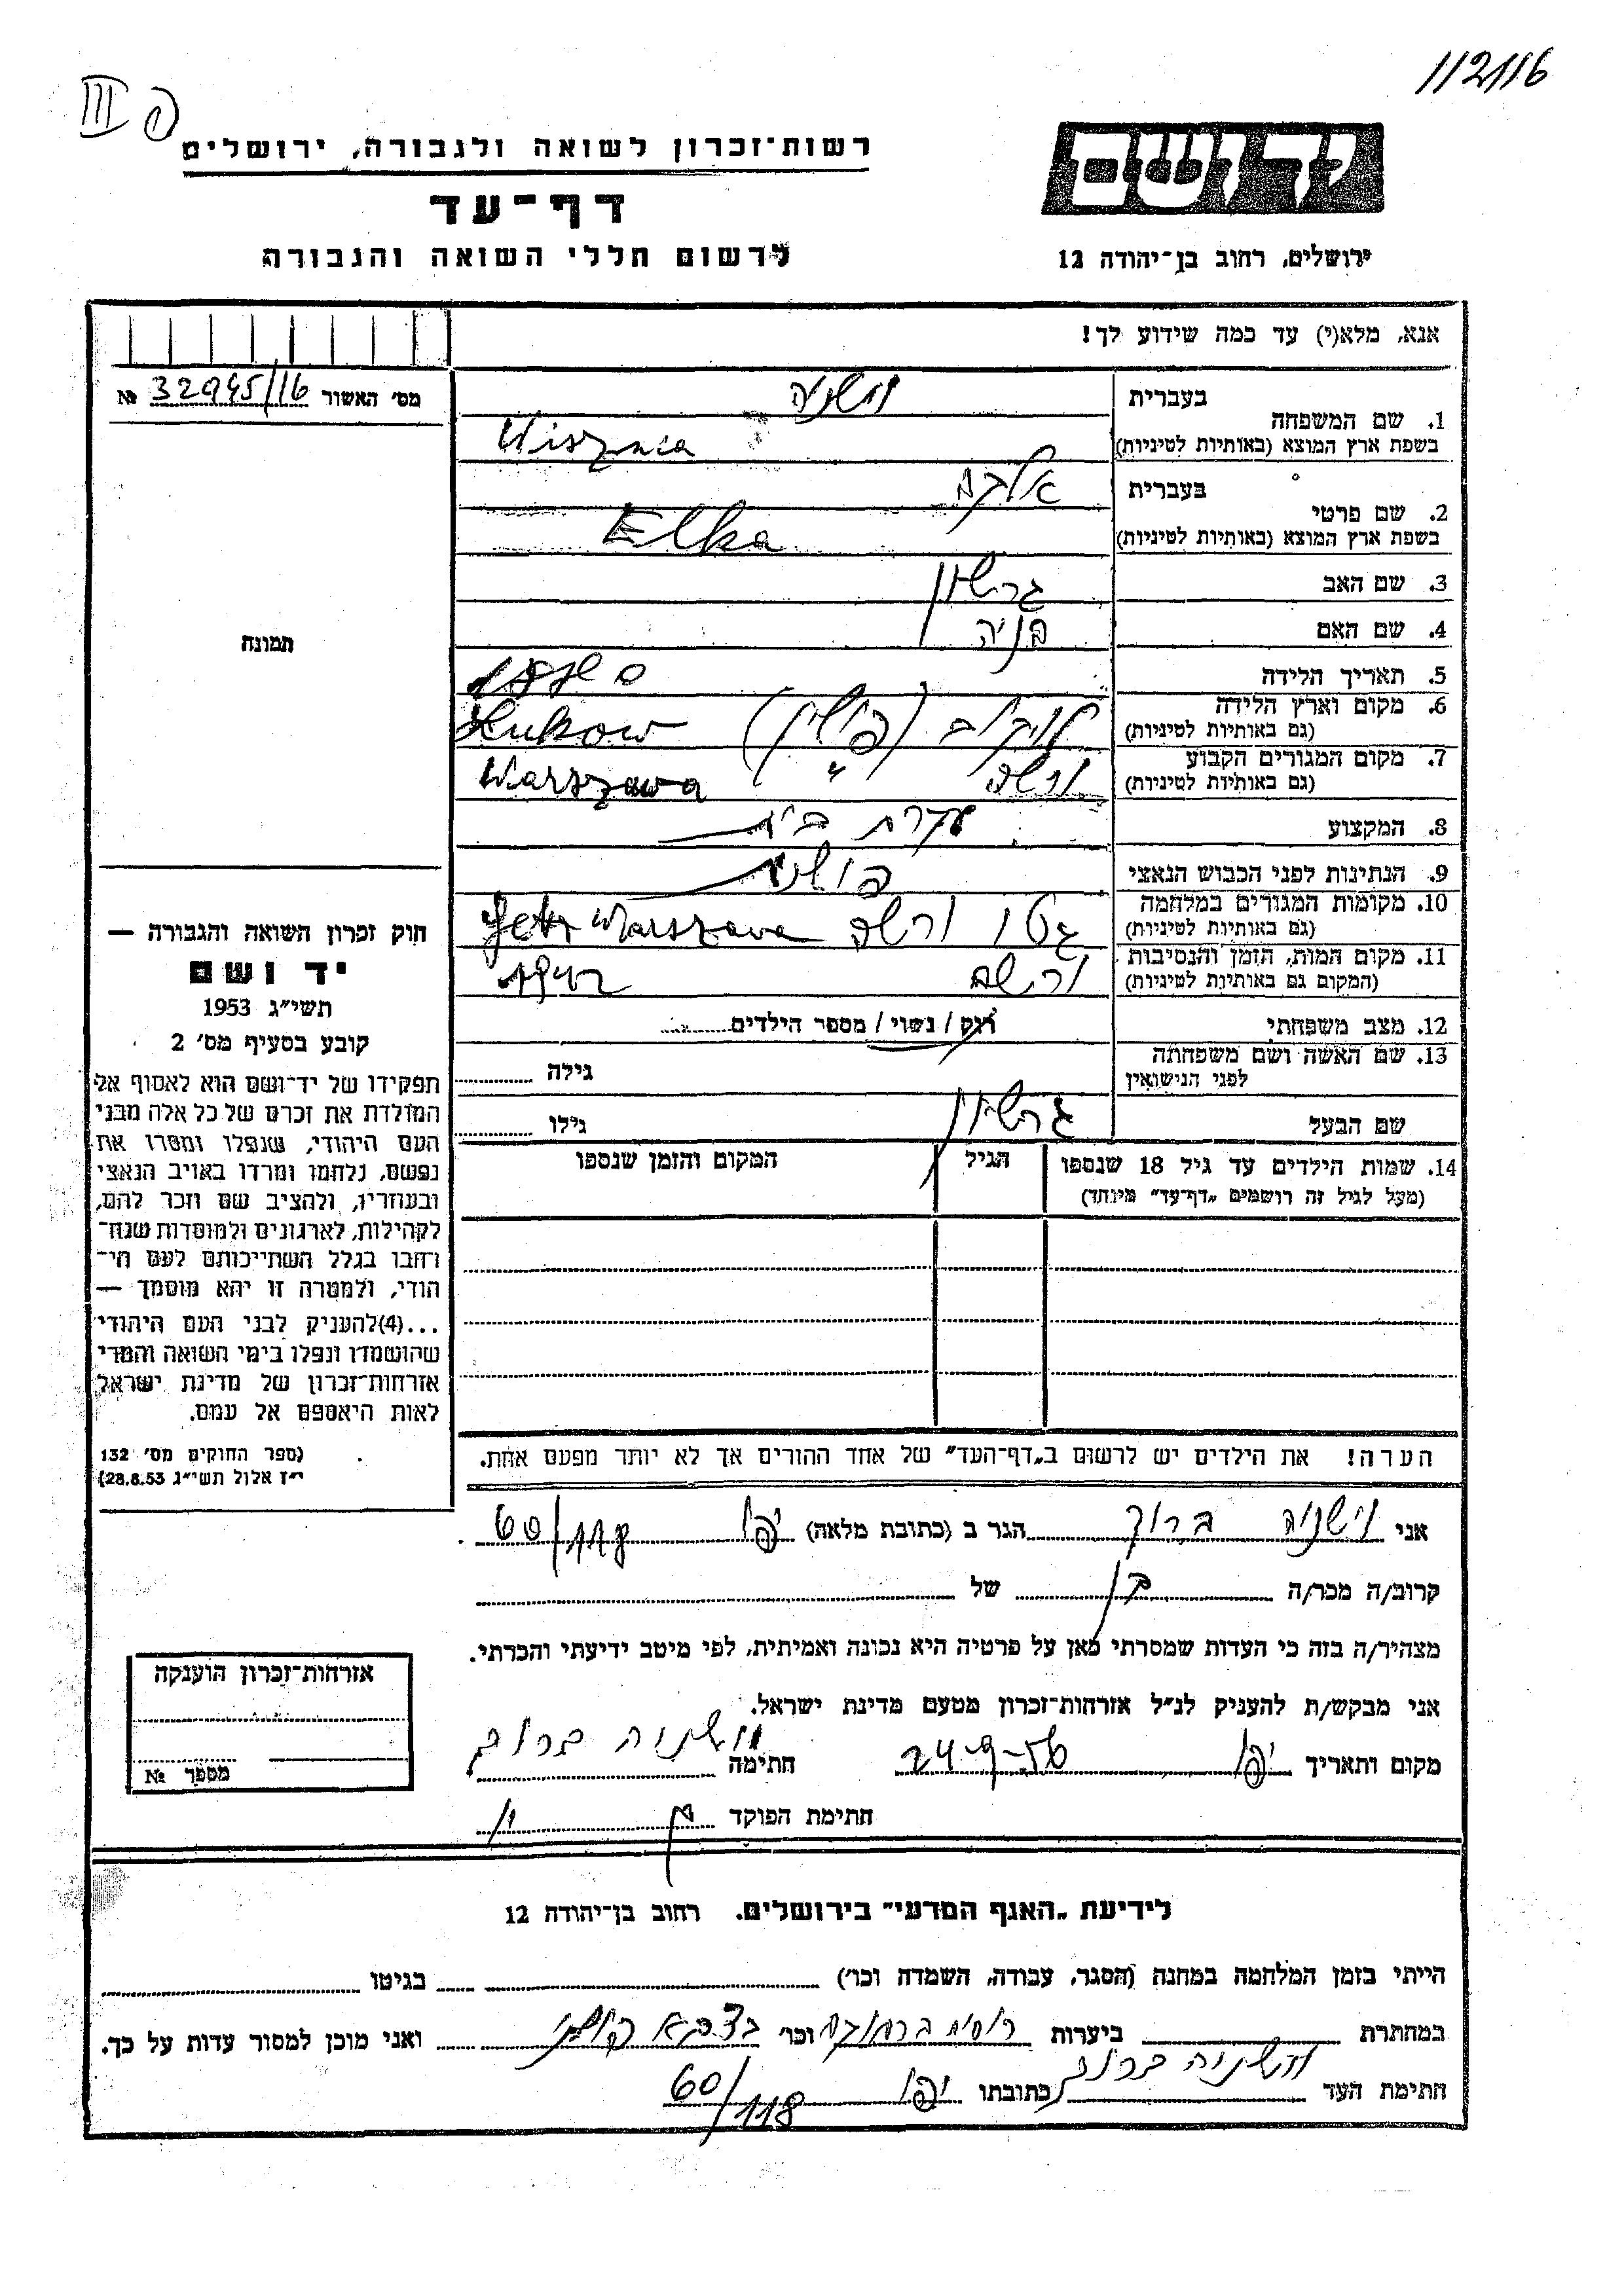 112116
III
רשות־זכרון לשואה ולגבורה, ירושלים
ידושם
דף־עד
לרשום חללי השואה והגבורה
ירושלים, רחוב בן־יהודה 12
אנא, מלא(י) עד כמה שידוע לך!
מס׳ האשור 32945/16 №
1. שם המשפחה
בעברית
בשפת ארץ המוצא (באותיות לטיניות)
Wisznia
2. שם פרטי
בעברית אלקה
בשפת ארץ המוצא (באותיות לטיניות) Elka
3. שם האב גרשון
4. שם האם
5. תאריך הלידה
6. מקום וארץ הלידה (פולין) Łukow
(גם באותיות לטיניות)
7. מקום המגורים הקבוע ורשה " Warszawa
(גם באותיות לטיניות)
8. המקצוע עקרת בית
9. הנתינות לפני הכבוש הנאצי פולנית
10. מקומות המגורים במלחמה גטו ורשה Warszawa
(גם באותיות לטיניות)
11. מקום המות, הזמן והנסיבות ורשה 1942
(המקום גם באותיות לטיניות)
12. מצב משפחתי רוק / נשוי / מספר הילדים
13. שם האשה ושם משפחתה
לפני הנישואין
גילה
שם הבעל גרשון גילו
14. שמות הילדים עד גיל 18 שנספו
(מעל לגיל זה רושמים „דף־עד” מיוחד)
הגיל
המקום והזמן שנספו
הערה! את הילדים יש לרשום ב„דף־העד” של אחד ההורים אך לא יותר מפעם אחת.
תמונה
חוק זכרון השואה והגבורה —
יד ושם
תשי״ג 1953
קובע בסעיף מס׳ 2
תפקידו של יד־ושם הוא לאסוף אל
המולדת את זכרם של כל אלה מבני
העם היהודי, שנפלו ומסרו את
נפשם, נלחמו ומרדו באויב הנאצי
ובעוזריו, ולהציב שם וזכר להם,
לקהילות, לארגונים ולמוסדות שנח־
רבו בגלל השתייכותם לעם הי־
הודי, ולמטרה זו יהא מוסמך —
...(4)להעניק לבני העם היהודי
שהושמדו ונפלו בימי השואה והמרי
אזרחות־זכרון של מדינת ישראל
לאות היאספם אל עמם.
(ספר החוקים מס׳ 132
י״ז אלול תשי״ג 28.8.53)
אני וישניה ברוך הגר ב (כתובת מלאה) יפו 60/118
קרוב/ה מכר/ה בן של
מצהיר/ה בזה כי העדות שמסרתי כאן על פרטיה היא נכונה ואמיתית, לפי מיטב ידיעתי והכרתי.
אני מבקש/ת להעניק לנ״ל אזרחות־זכרון מטעם מדינת ישראל.
מקום ותאריך יפו 24-9-56 חתימה וישניה ברוך
חתימת הפוקד
אזרחות־זכרון הוענקה
מספר №
לידיעת „האגף המדעי” בירושלים. רחוב בן־יהודה 12
הייתי בזמן המלחמה במחנה (הסגר, עבודה, השמדה וכו׳) בגיטו
במחתרת ביערות וכו׳ בצבא ואני מוכן למסור עדות על כך.
חתימת העד וישניה ברוך כתובתו יפו 60/118